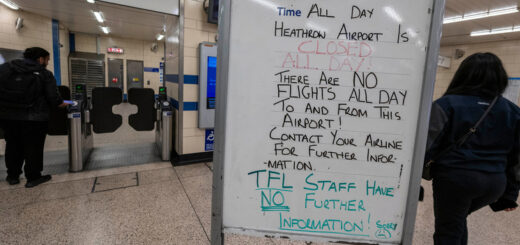 Time ALL DAY
HEATHROW AIRPORT IS
CLOSED
ALL DAY!
THERE ARE NO
FLIGHTS ALL DAY
TO AND FROM THIS
AIRPORT!
CONTACT YOUR AIRLINE
FOR FURTHER INFOR-
-MATION.
TFL STAFF HAVE
NO FURTHER
INFORMATION! SORRY